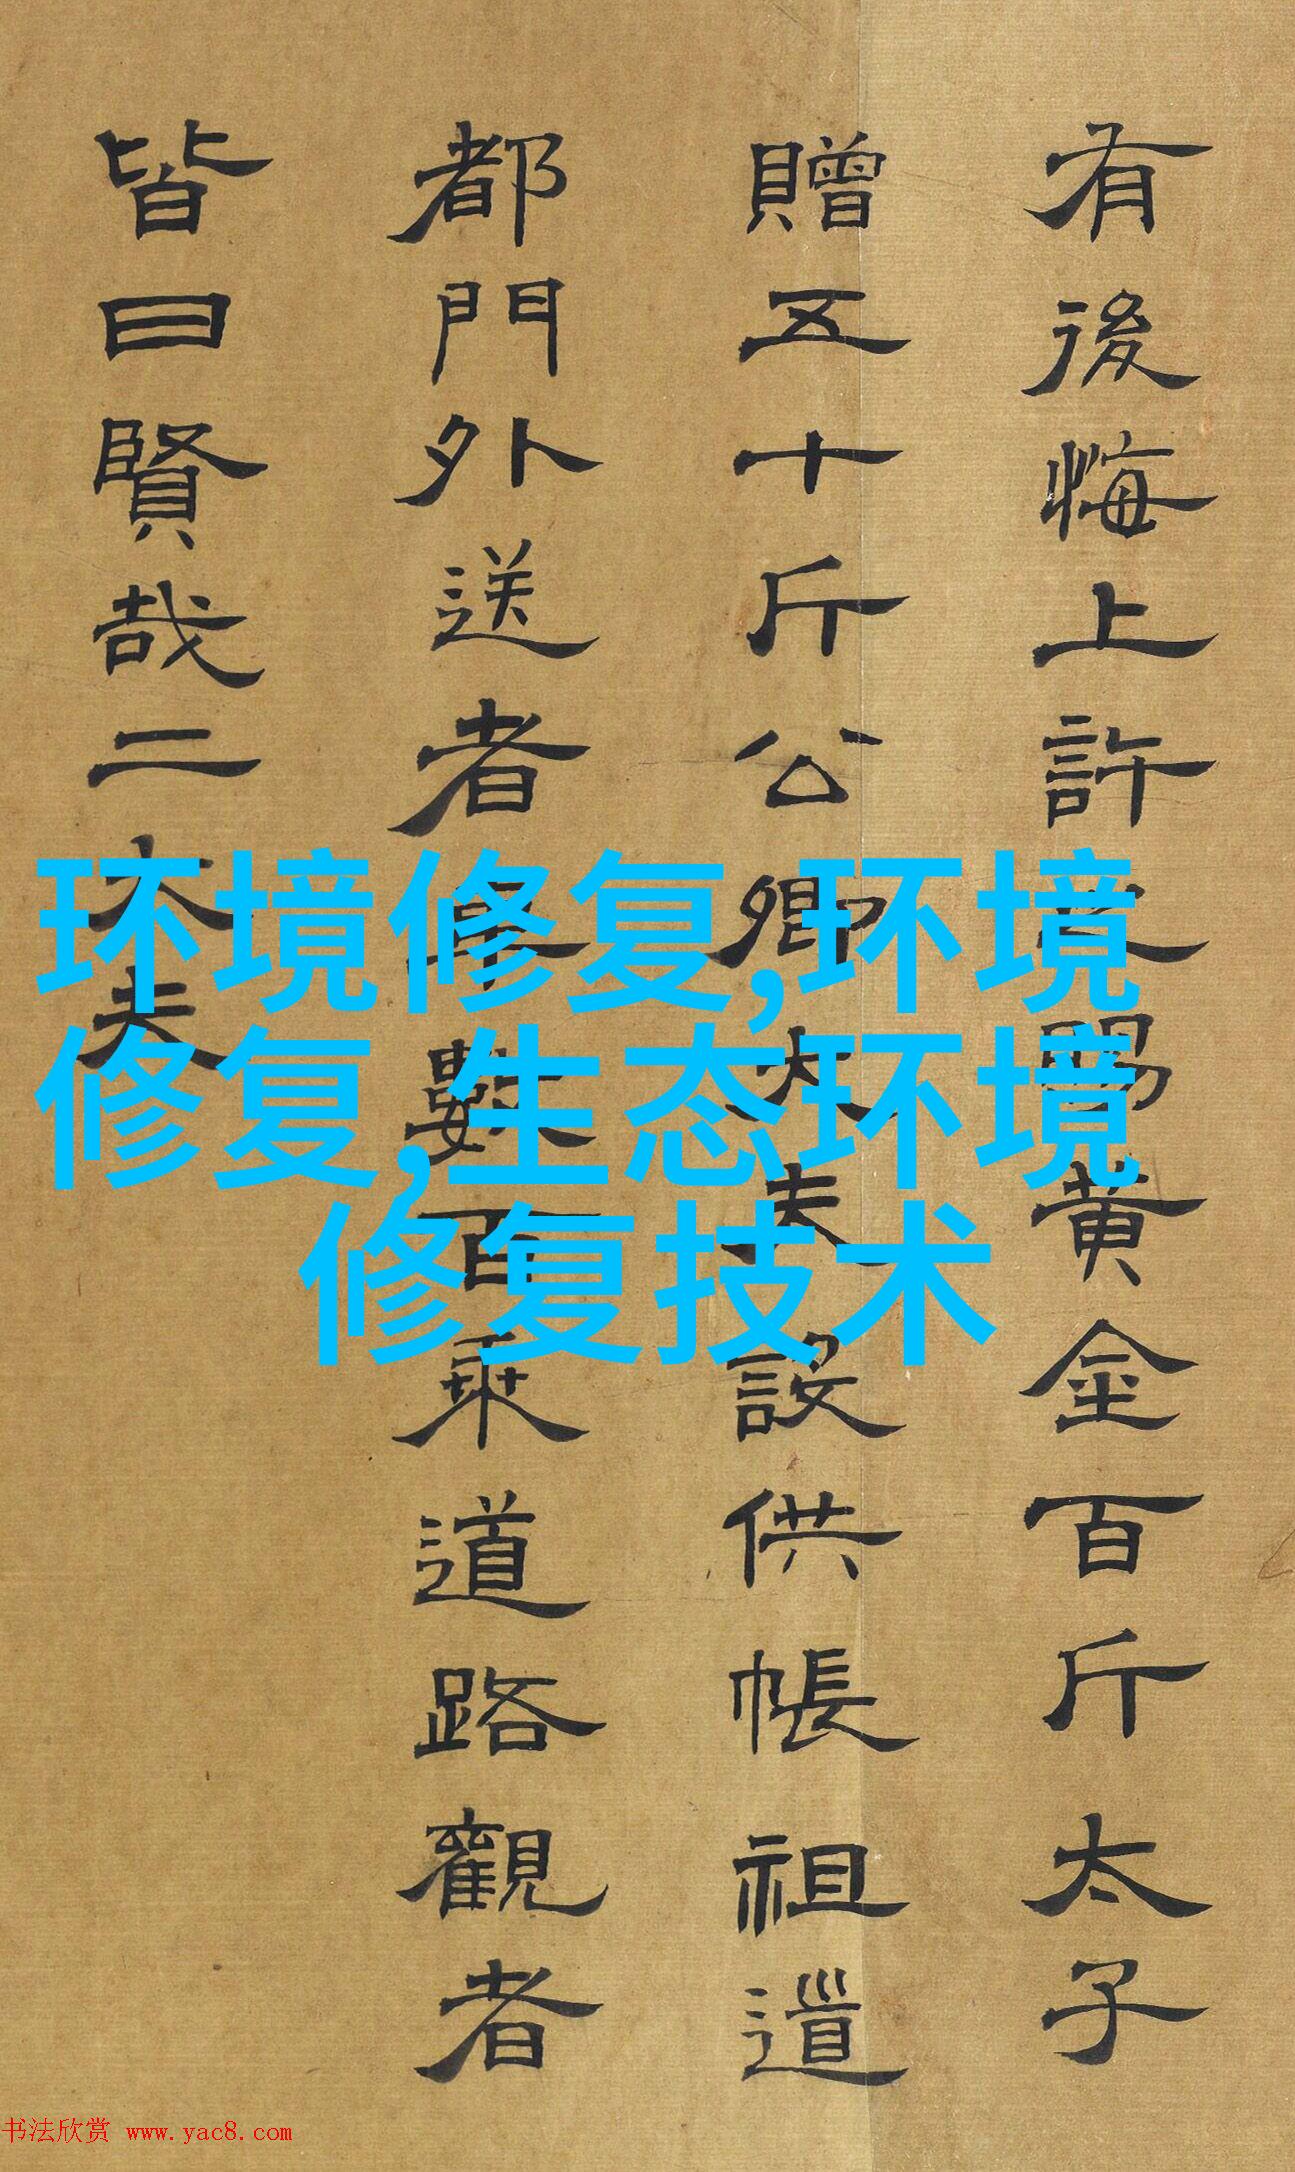 有後悔上許之賜黄金百斤太子
贈五十斤公卿大夫設供帳祖道
都門外送者車數百乘道路觀者
皆曰賢哉二大夫
环境修复,环境
修复,生态环境
修复技术
书法欣赏 www.yac8.com